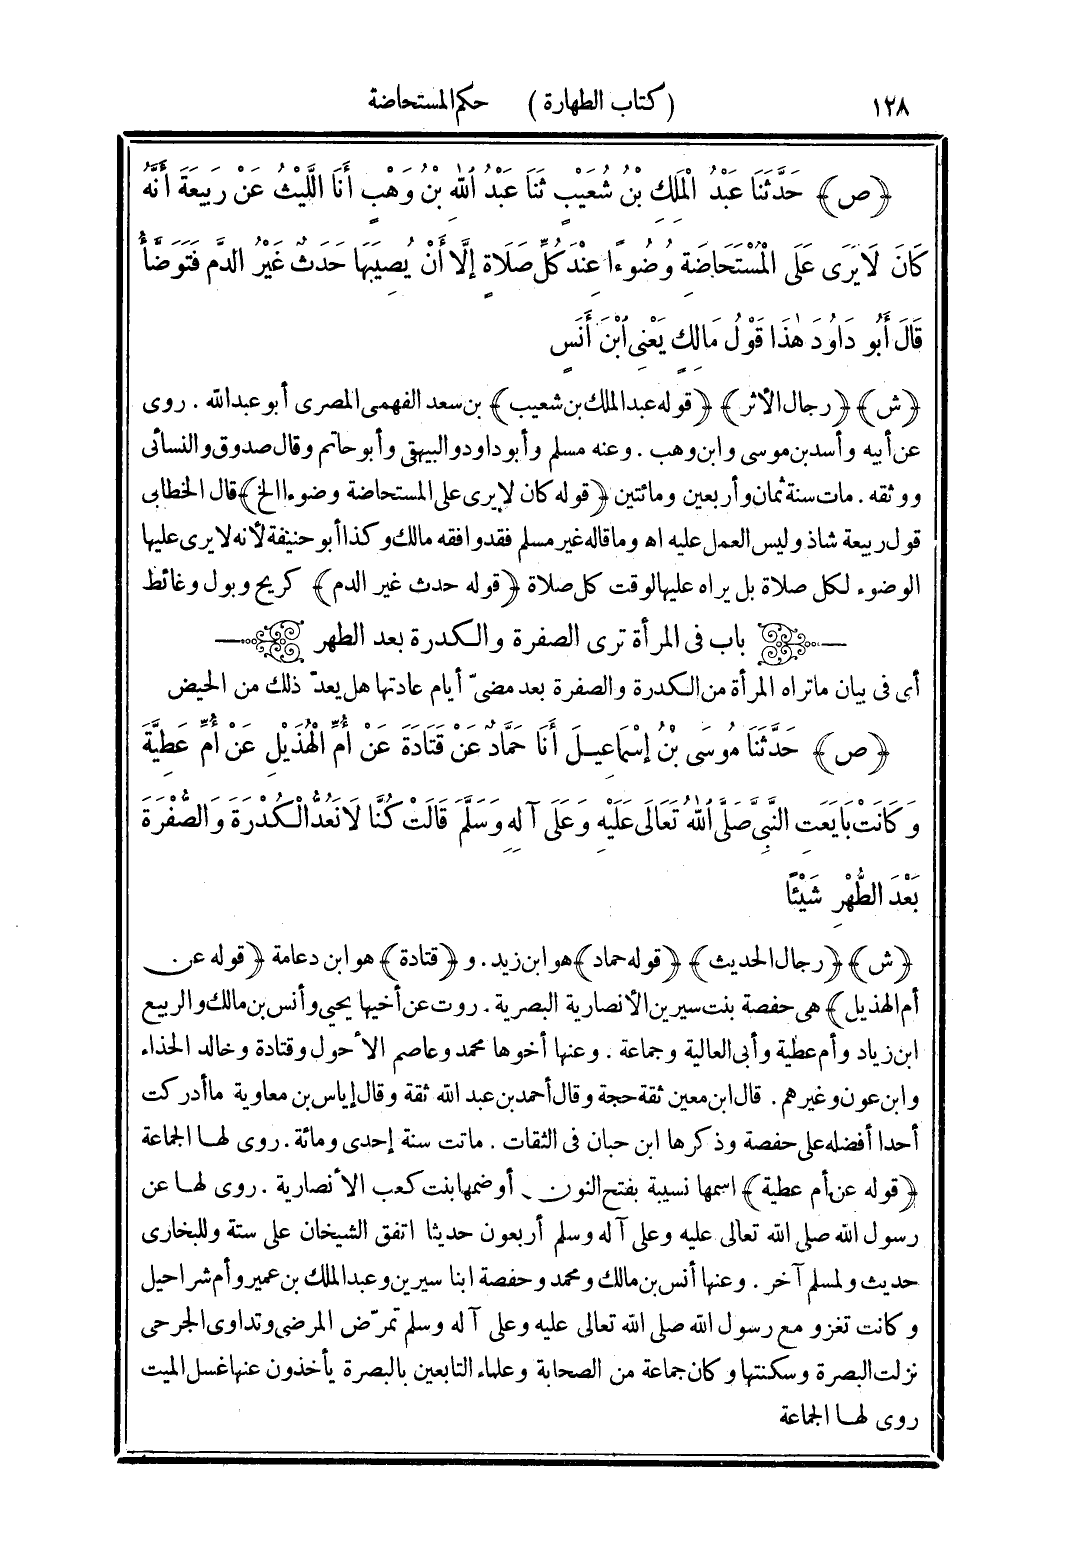 ١٢٨ (كتاب الطهارة) حكم المستحاضة
﴿ص﴾ حَدَّثَنَا عَبْدُ الْمَلِكِ بْنُ شُعَيْبٍ ثَنَا عَبْدُ اللهِ بْنُ وَهْبٍ أَنَا اللَّيْثُ عَنْ رَبِيعَةَ أَنَّهُ
كَانَ لَا يَرَى عَلَى الْمُسْتَحَاضَةِ وُضُوءًا عِنْدَ كُلِّ صَلَاةٍ إِلَّا أَنْ يُصِيبَهَا حَدَثٌ غَيْرُ الدَّمِ فَتَوَضَّأُ
قَالَ أَبُو دَاوُدَ هٰذَا قَوْلُ مَالِكٍ يَعْنِى ابْنَ أَنَسٍ
﴿ش﴾ ﴿رجال الأثر﴾ ﴿قوله عبد الملك بن شعيب﴾ بن سعد الفهمى المصرى أبو عبد الله . روى
عن أبيه وأسد بن موسى وابن وهب . وعنه مسلم وأبو داود والبيهقى وأبو حاتم وقال صدوق والنسائى
ووثقه . مات سنة ثمان وأربعين ومائتين ﴿قوله كان لا يرى على المستحاضة وضوءا الخ﴾ قال الخطابى
قول ربيعة شاذ وليس العمل عليه اه وما قاله غير مسلم فقد وافقه مالك وكذا أبو حنيفة لأنه لا يرى عليها
الوضوء لكل صلاة بل يراه عليها لوقت كل صلاة ﴿قوله حدث غير الدم﴾ كريح وبول وغائط
باب فى المرأة ترى الصفرة والكدرة بعد الطهر
أى فى بيان ما تراه المرأة من الكدرة والصفرة بعد مضىّ أيام عادتها هل يعدّ ذلك من الحيض
﴿ص﴾ حَدَّثَنَا مُوسَى بْنُ إِسْمَاعِيلَ أَنَا حَمَّادٌ عَنْ قَتَادَةَ عَنْ أُمِّ الْهُذَيْلِ عَنْ أُمِّ عَطِيَّةَ
وَكَانَتْ بَايَعَتِ النَّبِىَّ صَلَّى اللهُ تَعَالَى عَلَيْهِ وَعَلَى آلِهِ وَسَلَّمَ قَالَتْ كُنَّا لَا نَعُدُّ الْكُدْرَةَ وَالصُّفْرَةَ
بَعْدَ الطُّهْرِ شَيْئًا
﴿ش﴾ ﴿رجال الحديث﴾ ﴿قوله حماد﴾ هو ابن زيد . و﴿قتادة﴾ هو ابن دعامة ﴿قوله عن
أم الهذيل﴾ هى حفصة بنت سيرين الأنصارية البصرية . روت عن أخيها يحيى وأنس بن مالك والربيع
ابن زياد وأم عطية وأبى العالية وجماعة . وعنها أخوها محمد وعاصم الأحول وقتادة وخالد الحذاء
وابن عون وغيرهم . قال ابن معين ثقة حجة وقال أحمد بن عبد الله ثقة وقال إياس بن معاوية ما أدركت
أحدا أفضله على حفصة وذكرها ابن حبان فى الثقات . ماتت سنة إحدى ومائة . روى لها الجماعة
﴿قوله عن أم عطية﴾ اسمها نسيبة بفتح النون أو ضمها بنت كعب الأنصارية . روى لها عن
رسول الله صلى الله تعالى عليه وعلى آله وسلم أربعون حديثا اتفق الشيخان على ستة وللبخارى
حديث ولمسلم آخر . وعنها أنس بن مالك ومحمد وحفصة ابنا سيرين وعبد الملك بن عمير وأم شراحيل
وكانت تغزو مع رسول الله صلى الله تعالى عليه وعلى آله وسلم تمرّض المرضى وتداوى الجرحى
نزلت البصرة وسكنتها وكان جماعة من الصحابة وعلماء التابعين بالبصرة يأخذون عنها غسل الميت
روى لها الجماعة